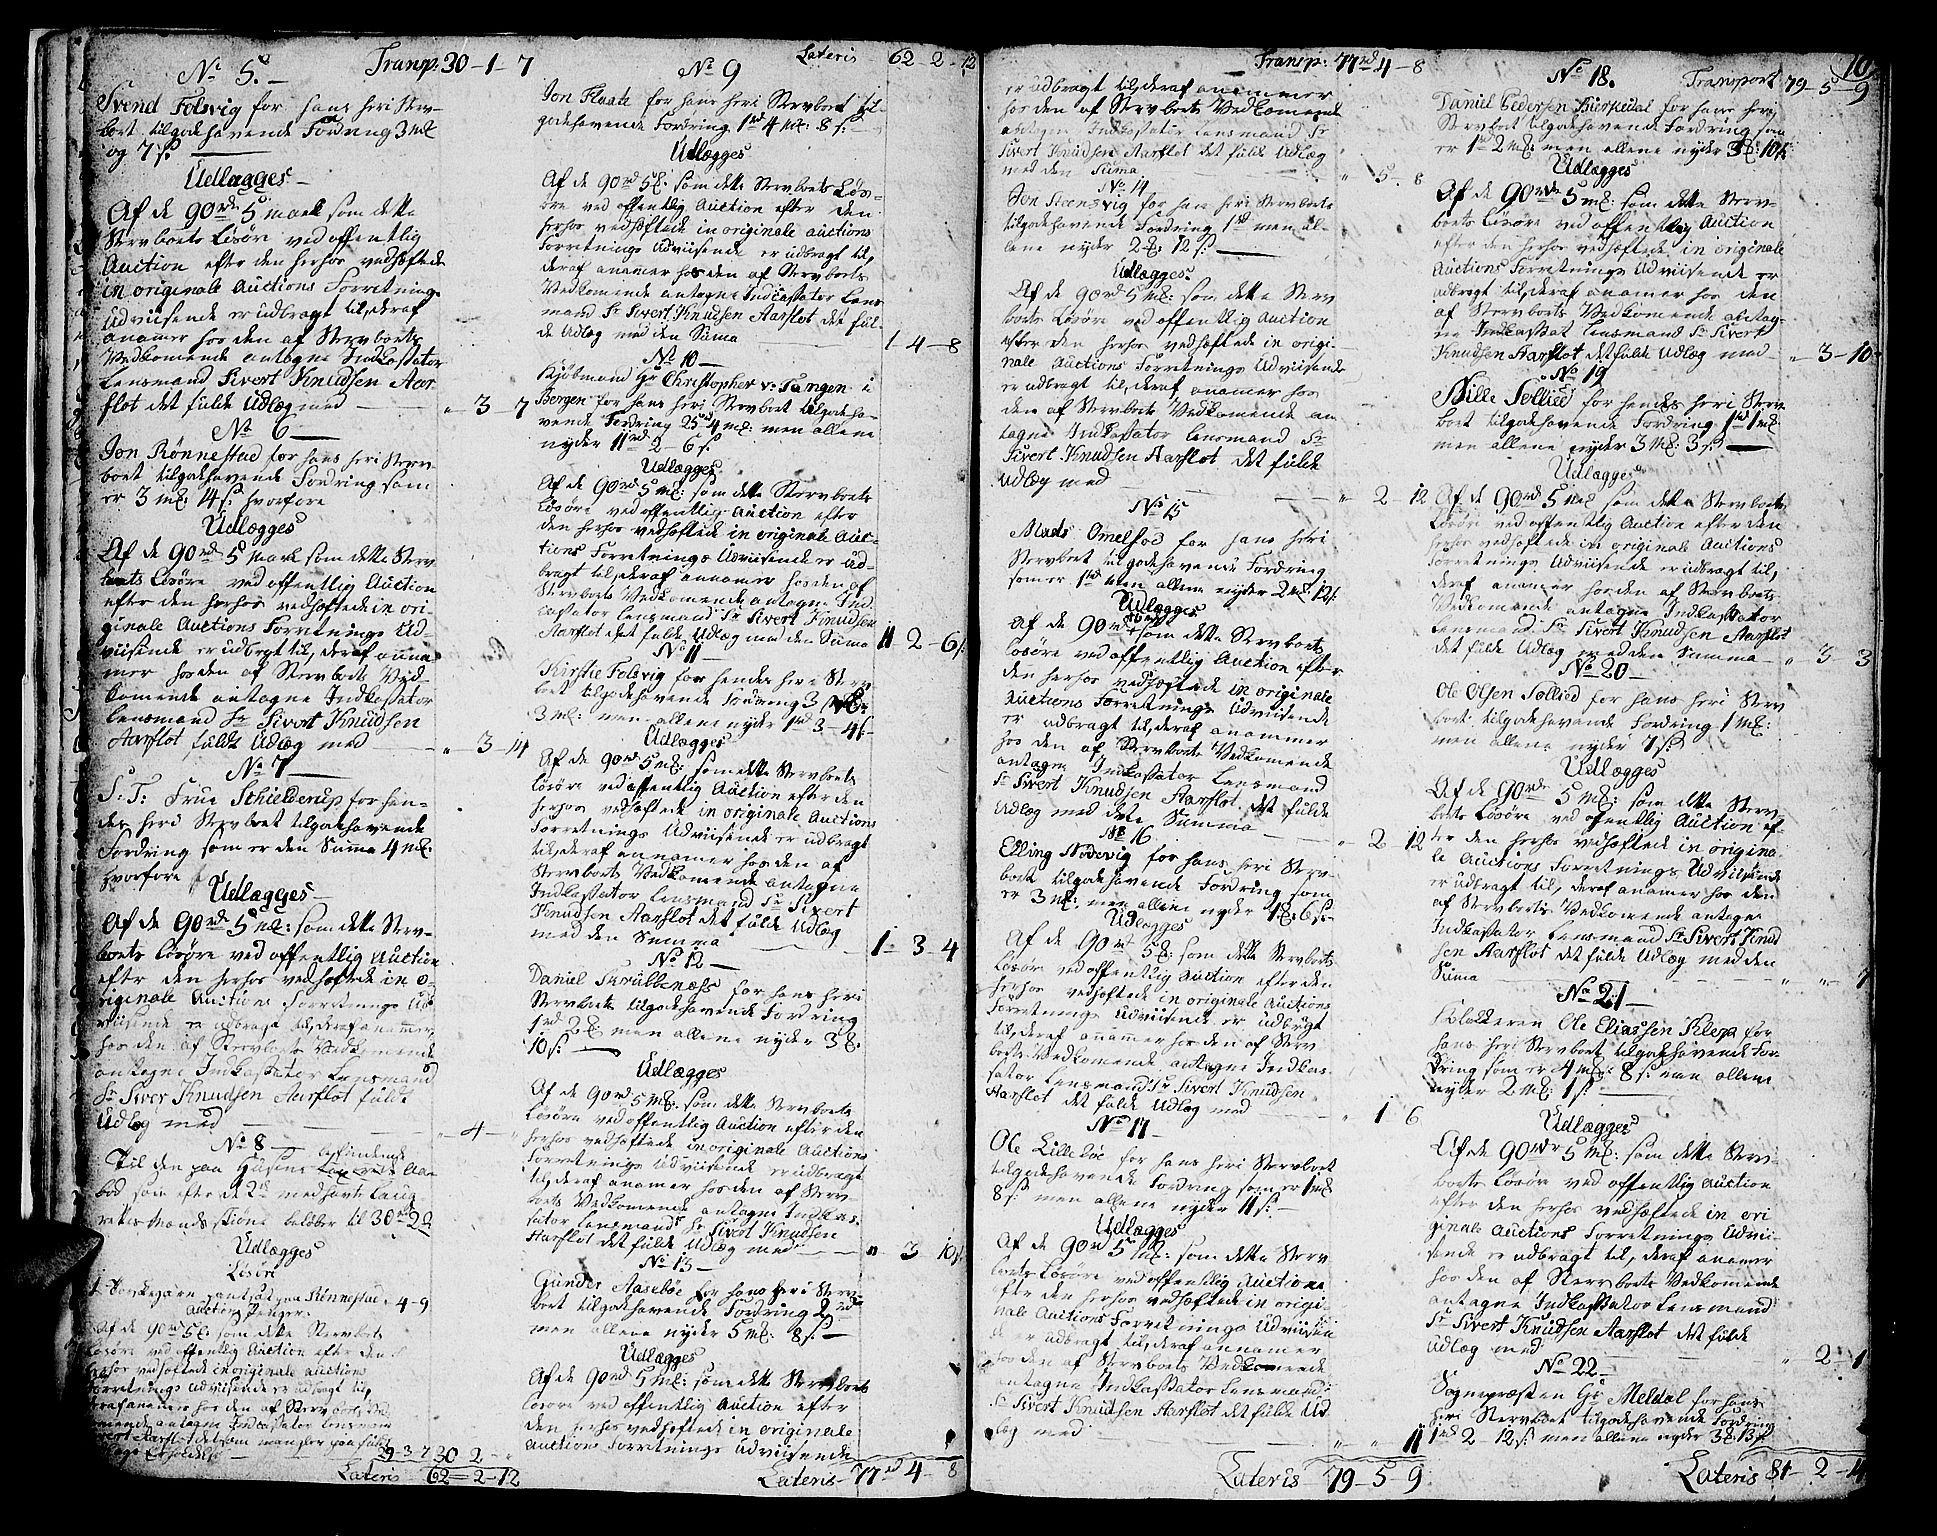 Transp: 30-1-7
No 5.
Svend Folsvig for hans heri Sterv-
boet tilgodehavende Fordring 3 mk
og 7 s.
Udlægges
Af de 90 rdr 5 mark som dette
Stervboets Løsøre ved offentlig
Auction efter den herhos vedhæftede
in originale Auctions Forretnings
Udviisende er udbragt til, deraf
anamer hos den af Stervboets
Vedkomende antagne Indkassator
Lensmand Sivert Knudsen Aar-
flot det fulde Udlæg med " 3-7
No 6
Jon Rønnestad for hans heri Sterv-
boet tilgodehavende Fordring som
er 3 mk: 14 s: hvorfore
Udlægges
Af de 90 rd 5 Mark som dette Sterv
boets Løsøre ved offentlig Auction
efter den herhos vedhæftede in ori-
ginale Auctions Forretnings Ud-
viisende er udbragt til, deraf anna
mer hos den af Stervboets Ved-
komende antagne Indkassator
Lensmand Sr Sivert Knudsen
Aarflot fulde Udlæg med " 3-14
No 7
S: T: Frue Schielderup for hen-
des heri Stervboet tilgodehavende
Fordring som er den Summa 4 mk:
hvorfore
Udlægges
Af de 90 rdr 5 mk: som dette Sterv-
boets Løsøre ved offentlig Auction
efter den herhos vedhæftede in o-
riginale Auctions Forretnings Ud
viisende er udbragt til, deraf anammer
hos den af Stervboets Vedkomende
antagne Indkassator Lensmand
Sr Siver Knudsen Aarflot fulde
Udlæg med " 4 - "
No 8
Til den paa Husene befindende Aar
bod som efter de 2de
beløber til 30 rd 2
Udlægges
Løsøre
paa Rønnestad " 4-9
Auctions Penger
Af de 90 rd 5 mk: som dette Stervboets
Løsøre ved offentlig Auction efter den
herhos vedhæftede in originale auctions
Forretnings Udviisende er udbragt til,
deraf anamer hos den af Stervboets Ved
komende antagne Indkassator Lensmand
Sivert Aarflot det som mangler paa fulde
29 3 7 30 2 - "
Lateris 62-2-12
Lateris 62-2-12
No 9
Jon Flaate for hans heri Stervboet til-
godehavende Fordring 1 rd 4 mk: 8 s:
Udlægges
Af de 90 rd 5 mk: som dette Stervboets Løs-
øre ved offentlig Auction efter den
herhos vedhæftede in originale auctions
Forretnings Udviisende er udbragt til,
deraf anamer hos den af Stervboets
Vedkomende antagne Indcassator Lens
mand Sr Sivert Knudsen Aarflot det ful-
de Udlæg med den Suma 1 4-8
No 10
Kjøbmand Hr Christopher v: Tangen i
Bergen for hans heri Stervboet tilgodeha-
vende Fordring 25 rd 4 mk: men allene
nyder 11 rd 2-6 s.
Udlægges
Af de 90 rd 5 mk: som dette Stervboets
Løsøre ved offentlig Auction efter
den herhos vedhæftede in originale Auc-
tions Forretnings Udviisende er ud-
bragt til, deraf annamer hos den af
Stervboets Vedkomende antagne Ind-
cassator Lensmand Sr Sivert Knudsen
Aarflot det fulde Udlæg med den Suma 11 2-6 s.
No 11
Kirstie Folsvig for hendes heri Sterv
boet tilgodehavende Fordring 3
3 mk: men allene nyder 1 rd 3-4 s
Udlægges
Af de 90 rd 5 mk: som dette Stervboets
Løsøre ved offentlig Auction efter den
herhos vedhæftede in originale Auctions
Forretnings Udviisende er udbragt
til, deraf annamer hos den af
Stervboets Vedkomende antagne
Indkassator Lensmand Sr Sivert
Knudsen Aarflot det fulde Udlæg
med den Summa 1-3-4
No 12
Daniel Skrubbenæss for hans heri
Stervboet tilgodehavende Fordring
1 rd 2 mk men allene nyder 3 mk:
10 s:
Udlægges
Af de 90 rd 5 mk: som dette Stervboets
Løsøre ved offentlig Auction efter den
herhos vedhæftede in originale Auctions
Forretnings Udviisende er udbragt
til, deraf anamer hos den af Sterv-
boets Vedkomende antagne Indkas-
sator Lensmand Sr Sivert Knudsen
Aarflot det fulde Udlæg med " 3 10 s.
No 13
Gunder Aasebøe for hans heri Sterv-
boet tilgodehavende Fordring 2 rd
men allene nyder 5 mk: 8 s:
Udlægges
Af de 90 rd 5 mk: som dette Stervboets
Løsøre ved offentlig Auction efter
den herhos vedhæftede in originale
Auctions Forretnings Udviisende
Lateris 77 rd 4-8
Transp: 77 rd 4-8
er udbragt til, deraf anammer
hos den af Stervboets Vedkomende
antagne Indkassator Lensmand Sr
Sivert Knudsen Aarflot det fulde Udlæg
med den Suma " 5. 8
No 14
Jon Steensvig for hans heri Stervboets
tilgodehavende Fordring 1 rd men al-
lene nyder 2 mk: 12 s:
Udlægges
Af de 90 rd 5 mk: som dette Sterv
boets Løsøre ved offentlig Auction
efter den herhos vedhæftede in origi-
nale Auctions Forretnings Udviisende
er udbragt til, deraf anamer hos
den af Stervboets Vedkomende an-
tagne Indkassator Lensmand Sr
Sivert Knudsen Aarflot det fulde
Udlæg med " 2-12
No 15
Mads Omelsod for hans heri
Stervboet tilgodehavende Fordring
som er 1 rd men allene nyder 2 mk 12 s.
Udlægges
Af de 90 rd 5 mk som dette Stervboets
Løsøre ved offentlig Auction efter
den herhos vedhæftede in originale
Auctions Forretnings Udviisende
er udbragt til, deraf anammer
hos den af Stervboets Vedkomende
antagne Indkassator Lensmand
Sr Sivert Knudsen Aarflot, det fulde
Udlæg med den Summa " 2 12
No 16
Elling Nødevig for hans heri Sterv-
boet tilgodehavende Fordring som
er 3 mk: men allene nyder 1 mk: 6 s:
Udlægges
Af de 90 rd 5 mk: som dette Stervboets
Løsøre ved offentlig Auction efter den
herhos vedhæftede in originale Auctions
Forretnings Udviisende er udbragt
til, deraf anammer hos den af Sterv
boets Vedkomende antagne Indkas-
sator Lensmand Sr Sivert Knudsen
Aarflot det fulde Udlæg med " 1 6
No 17
Ole Lillebøe for hans heri Stervboet
tilgodehavende Fordring som er 1 mk
8 s: men allene nyder 11 s:
Udlægges
Af de 90 rd 5 mk: som dette Sterv
boets Løsøre ved offentlig Auctions
efter den herhos vedhæftede in origi-
nale Auctions Forretnings Udviisen
de er udbragt til, deraf annamer
hos den af Stervboets Vedkomende
antagne Indkassator Lensmand
Sr Sivert Knudsen Aarflot det fulde Ud
læg med " " 11
Lateris 79-5-9
10.
Transport 79-5-9
No 18.
Daniel Pedersen Biørkedal for hans heri
Stervboet tilgodehavende Fordring som
er 1 rd 2 mk: men allene nyder 3 mk: 10 s.
Udlægges
Af de 90 rdr 5 mk: som dette Sterv-
boets Løsøre ved offentlig Auction
efter den herhos vedhæftede in originale
Auctions Forretnings Udviisende er
udbragt til, deraf anamer hos den
af Stervboets Vedkomende antag-
ne Indkassat Lensmand Sr Sivert
Knudsen Aarflot det fulde Udlæg med " 3-10
No 19
Sille Follied for hendes heri Sterv
boet tilgodehavende Fordring 1 rd 1 mk:
men allene nyder 3 mk: 3 s:
Udlægges
Af de 90 rd 5 mk som dette Stervboets
Løsøre ved offentlig Auction efter den
herhos vedhæftede in originale Auctions
Forretnings Udviisende er udbragt til,
deraf anamer hos den af Stervboets
Vedkomende antagne Indkassator
Lensmand Sr Sivert Knudsen Aarflot
det fulde Udlæg med den Summa " 3 3
No 20
Ole Olsen Follied for hans heri Sterv
boet tilgodehavende Fordring 1 mk:
men allene nyder 7 s:
Udlægges
Af de 90 rdr 5 mk: som dette Sterv-
boets Løsøre ved offentlig Auction ef-
ter den herhos vedhæftede in origina-
le Auctions Forretnings Udviisende
er udbragt til, deraf anamer hos den
af Stervboets Vedkomende antagne
Indkassator Lensmand Sr Sivert Knud
sen Aarflot det fulde Udlæg med den
Suma " " 7
No 21
Klokkeren Ole Eliassen Klep for
hans heri Stervboet tilgodehavende For-
dring som er 4 mk: 8 s: men allene
nyder 2 mk: 1 s:
Udlægges
Af de 90 rdr 5 mk: som dette Sterv-
boets Løsøre ved offentlig Auction
efter den herhos vedhæftede in ori
ginale Auctions Forretnings Udvii-
sende er udbragt til, deraf anamer
hos den af Stervboets Vedkomende
antagne Indkassator Lensmand
Sr Sivert Knudsen Aarflot det fulde
Udlæg med " 2-1
No 22
Sognepræsten Hr Meldal for hans
heri Stervboet tilgodehavende Fordring
1 rd 2 12 s: men allene nyder 3 mk: 13 s
Lateris 81-2-4